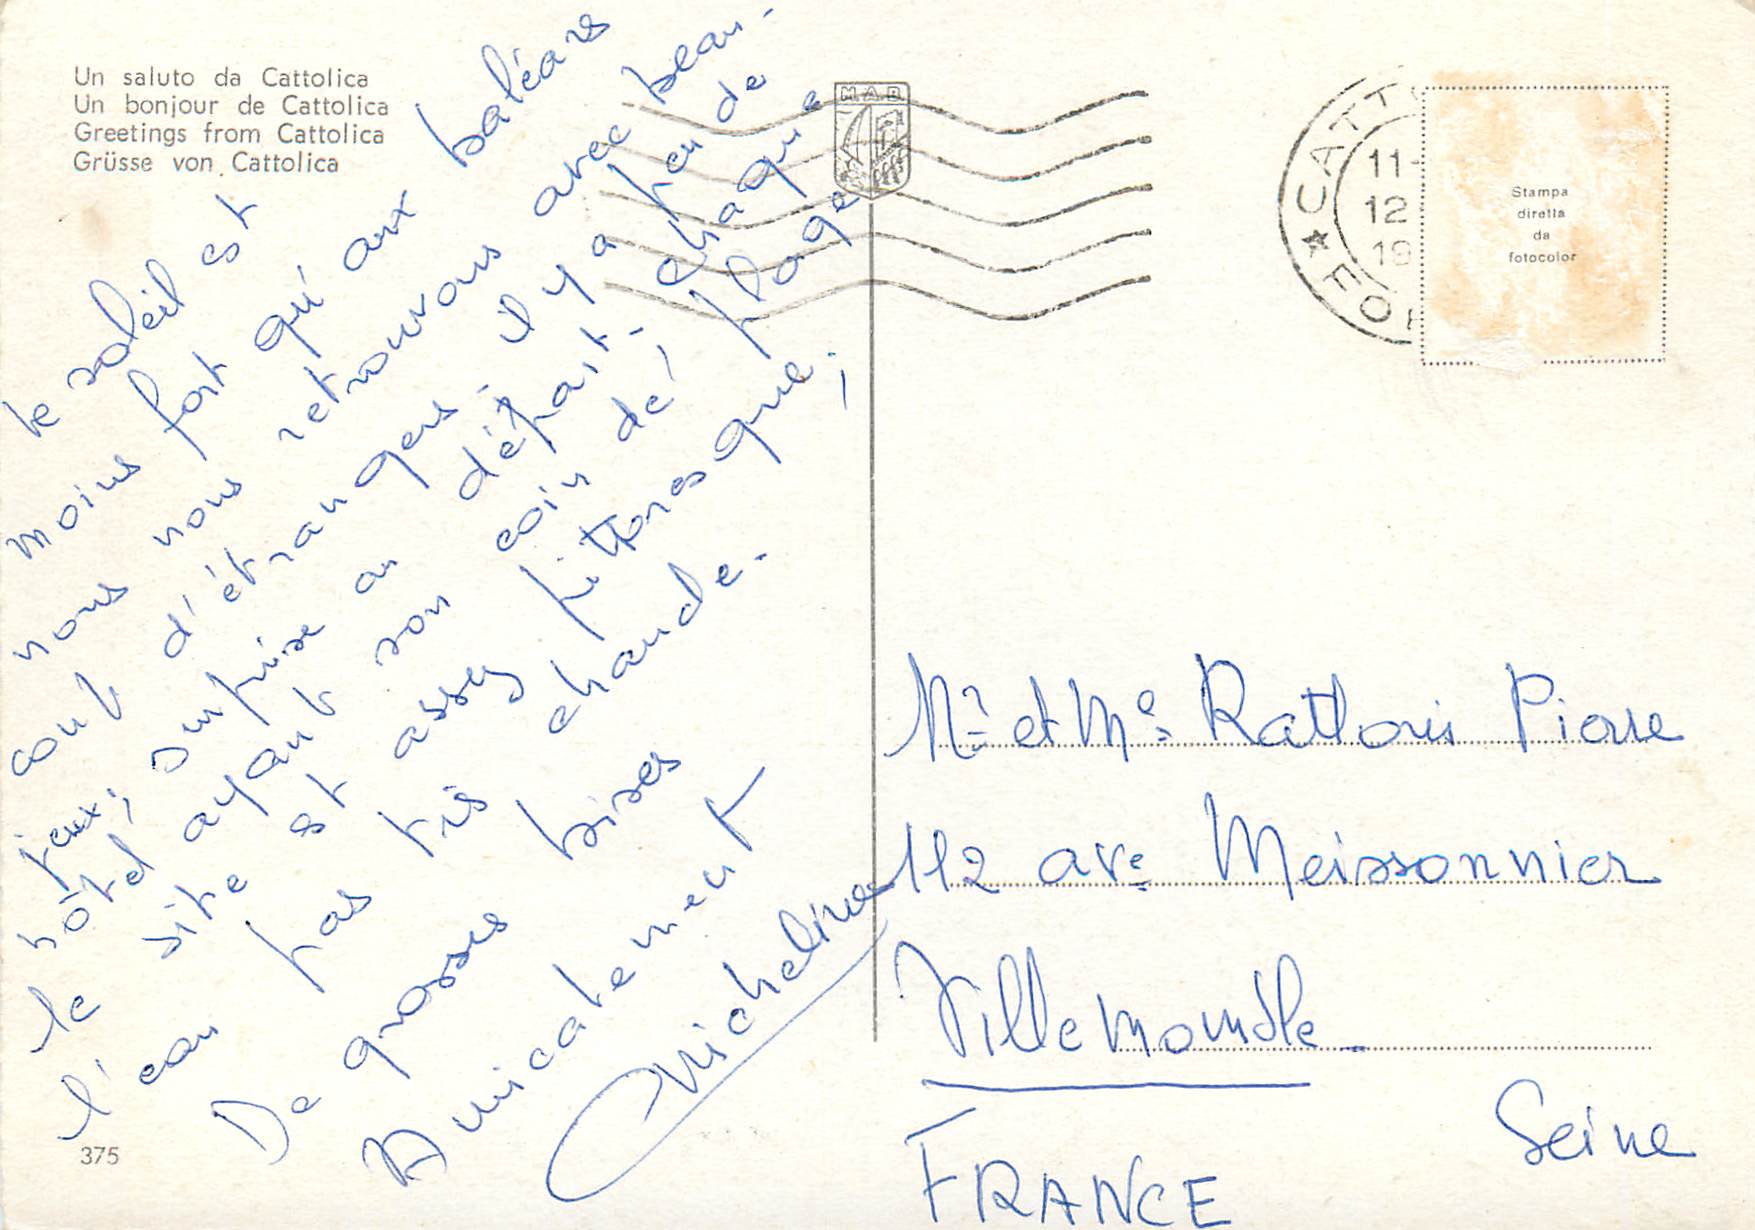 Un saluto da Cattolica
Un bonjour de Cattolica
Greetings from Cattolica
Grüsse von Cattolica
le soléil est
moins fort qu'aux baléares
nous nous retrouvons avec beau-
coup d'étrangers il y a peu de
jeux, surprise au départ. chaque
hôtel ayant son coin de plage
le site est assez pittoresque,
l'eau pas très chaude.
De grosses bises
Amicalement
Micheline
375
M.A.B
CATT
11-
12
19
★ FO
Stampa
diretta
da
fotocolor
Mr et Me Rattoris Pierre
112 ave Meissonnier
Villemomble
Seine
FRANCE